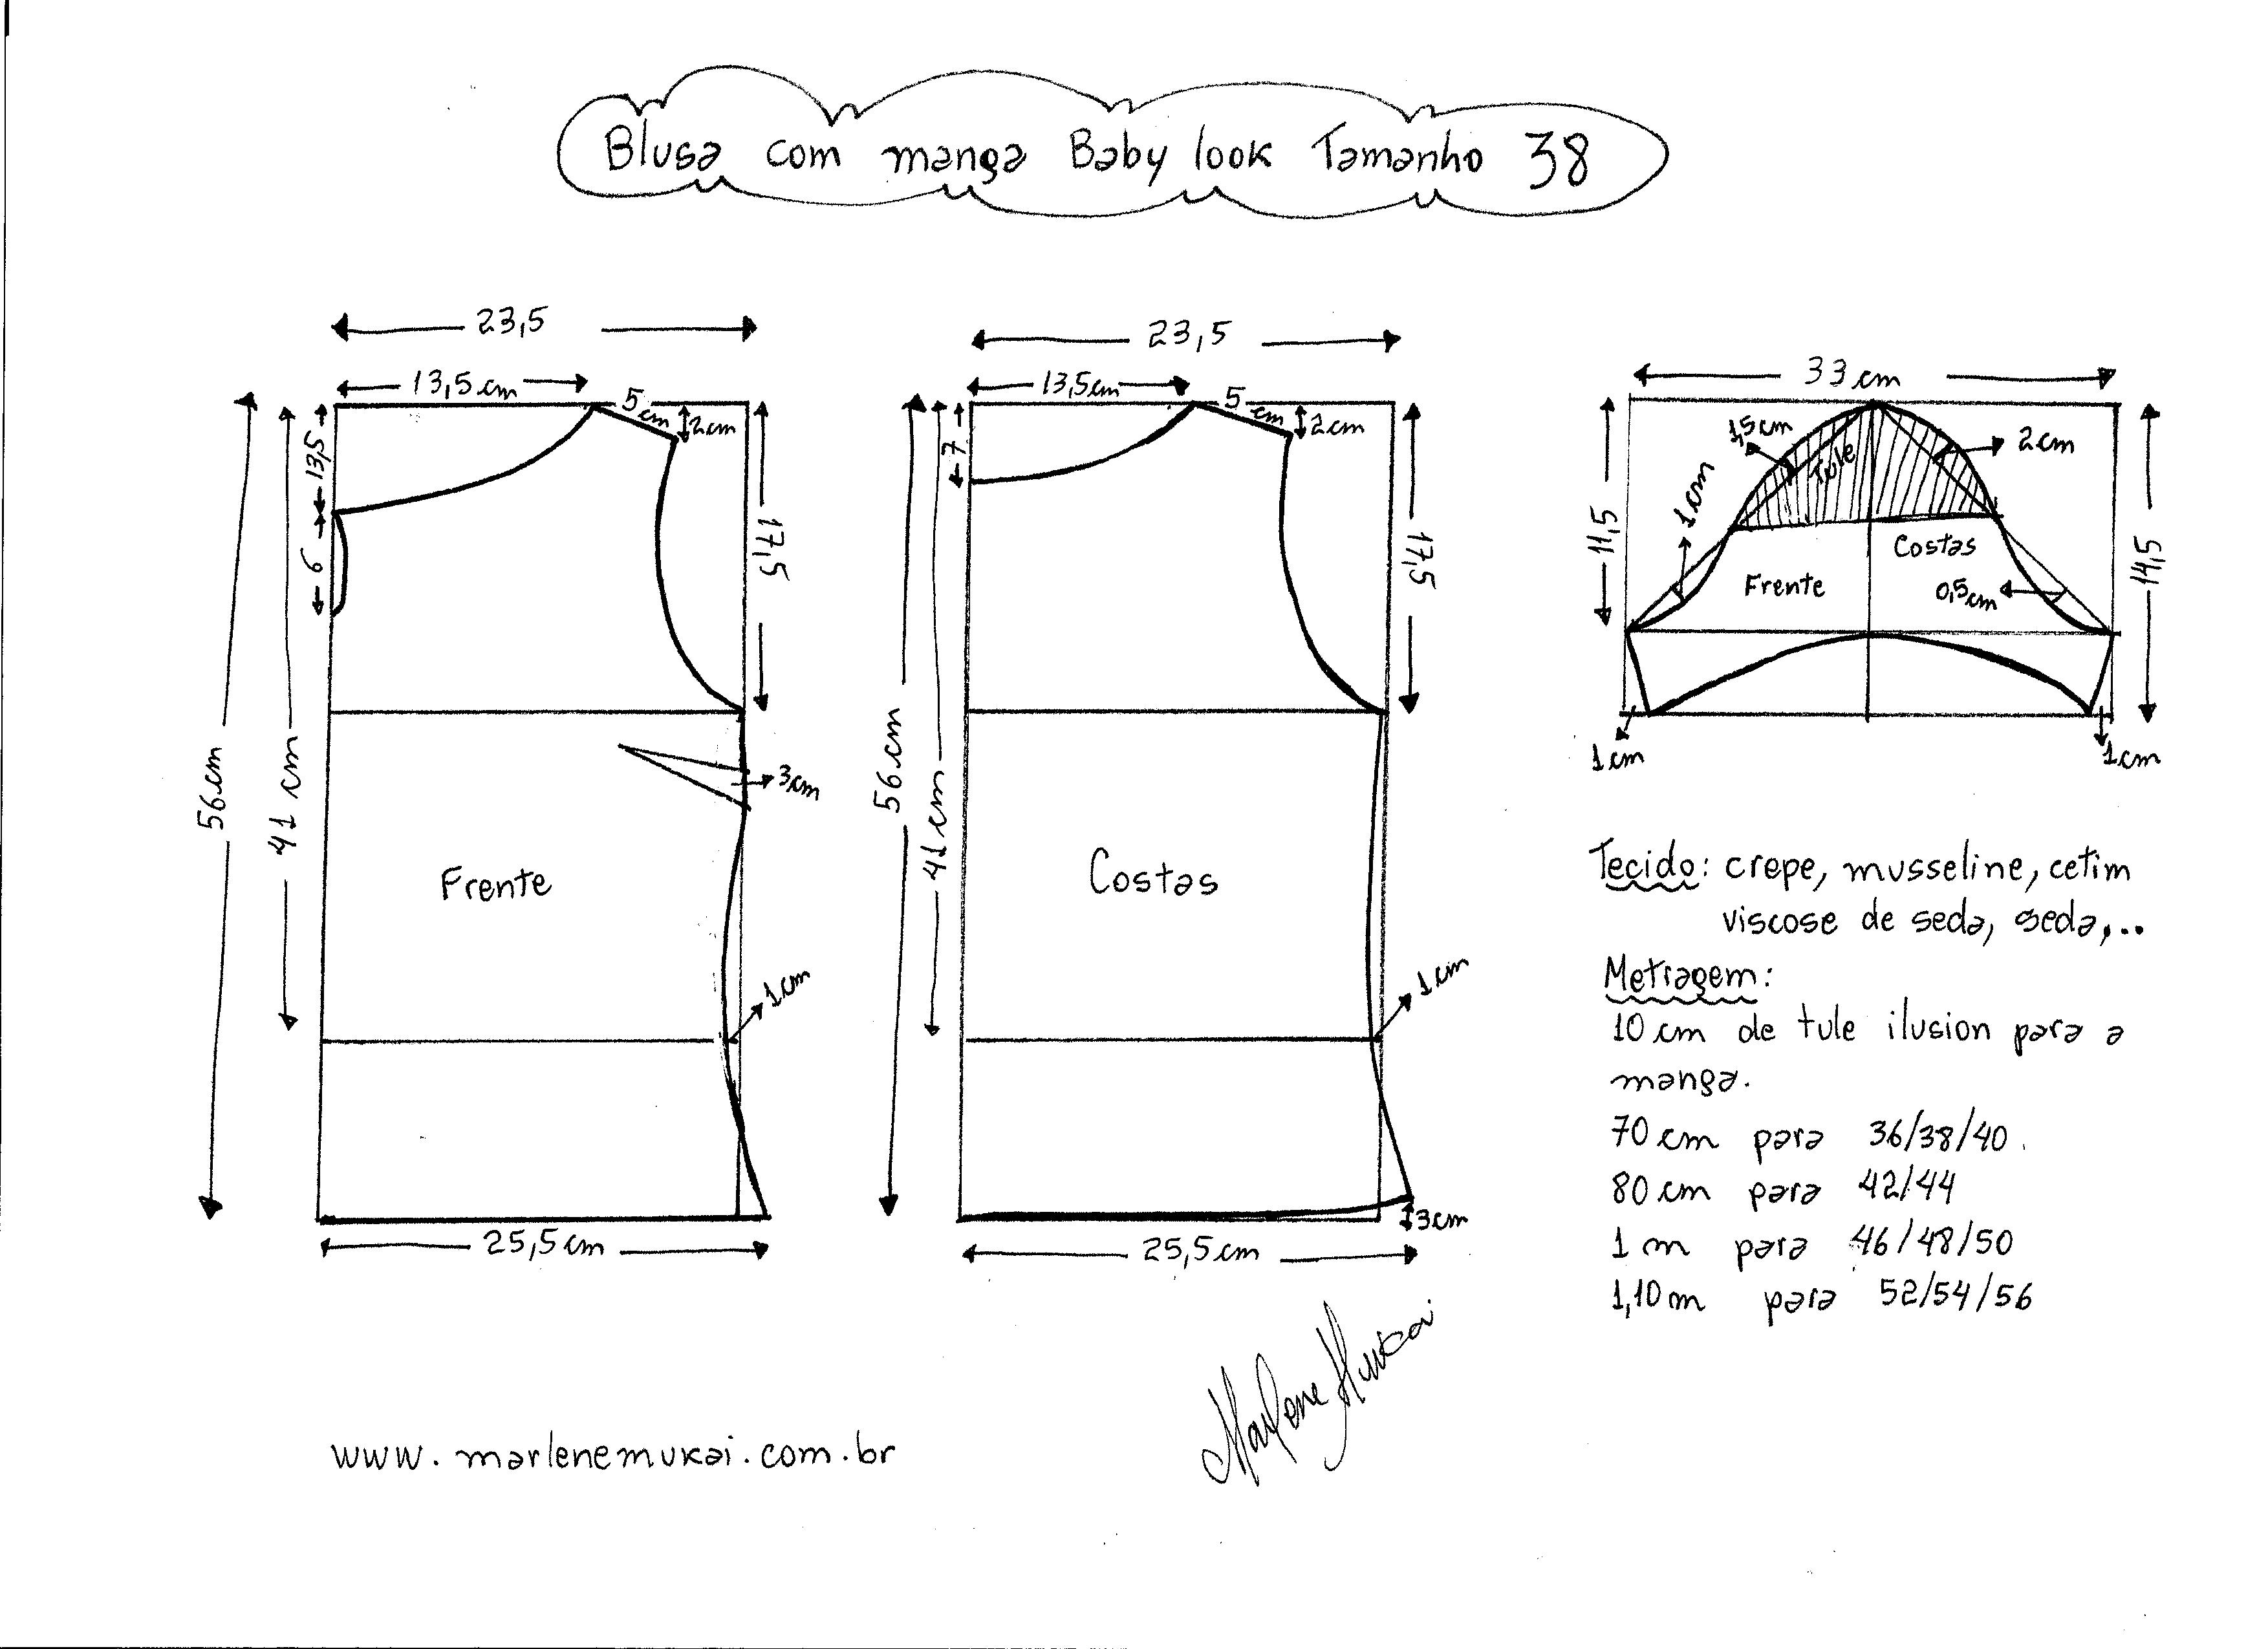 Blusa com manga Baby look Tamanho 38
23,5
13,5 cm
5 cm
2 cm
13,5
6
17,5
56 cm
41 cm
3 cm
Frente
1 cm
25,5 cm
23,5
13,5 cm
5 cm
2 cm
7
17,5
56 cm
41 cm
Costas
1 cm
3 cm
25,5 cm
33 cm
1,5 cm
2 cm
Tule
1 cm
11,5
14,5
Costas
Frente
0,5 cm
1 cm
1 cm
Tecido: crepe, musseline, cetim
viscose de seda, seda,...
Metragem:
10 cm de tule ilusion para a
manga.
70 cm para 36/38/40.
80 cm para 42/44
1 m para 46/48/50
1,10 m para 52/54/56
Marlene Mukai
www.marlenemukai.com.br